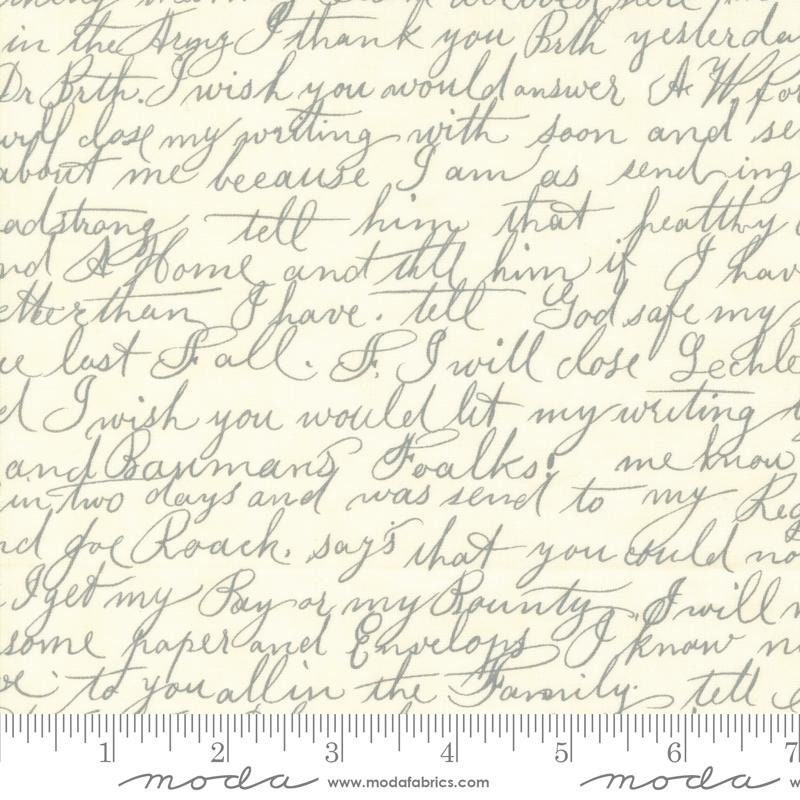 in the Army I thank you Brth yesterda
Dr Brth. I wish you would answer A W. for
will close my writing with soon and se
about me because I am as sending
adstrong tell him that healthy
nd A Home and tell him if I hav
etter than I have. tell God safe my
last Fall. F. I will close Lechle
d I wish you would let my writing
and Baumans Foalks. me know
in two days and was send to my Reg
nd Joe Roach. say's that you could no
I get my Pay or my Bounty, I will
some paper and Envelops I know n
to you all in the Family. tell
1 2 3 4 5 6 7
moda www.modafabrics.com moda w